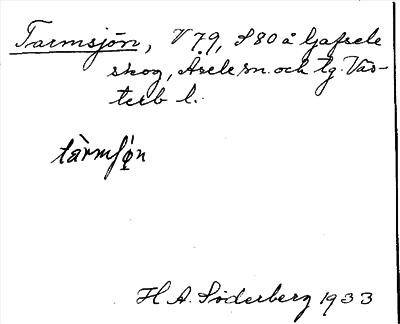 Tarmsjön, V 79, S 80 å Gafsele
skog, Åsele sn. och tg. Väs-
terb l.
tàrmſo̩n
H A. Söderberg 1933